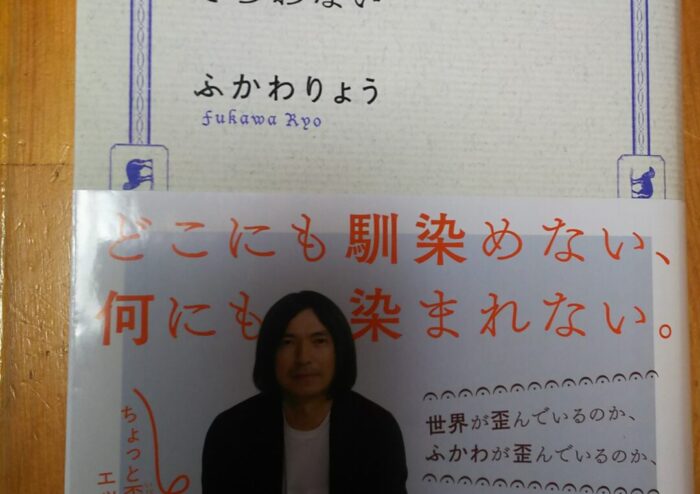 ふかわりょう
Fukawa Ryo
どこにも馴染めない、
何にも染まれない。
世界が歪んでいるのか、
ふかわが歪んでいるのか、
ちょっと
エッ